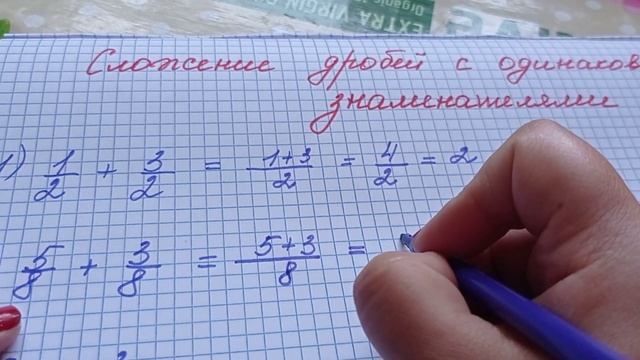 EXTRA VIRGIN
Organic
Сложение дробей с одинаков
знаменателями
1) 1/2 + 3/2 = 1+3/2 = 4/2 = 2
5/8 + 3/8 = 5+3/8 =